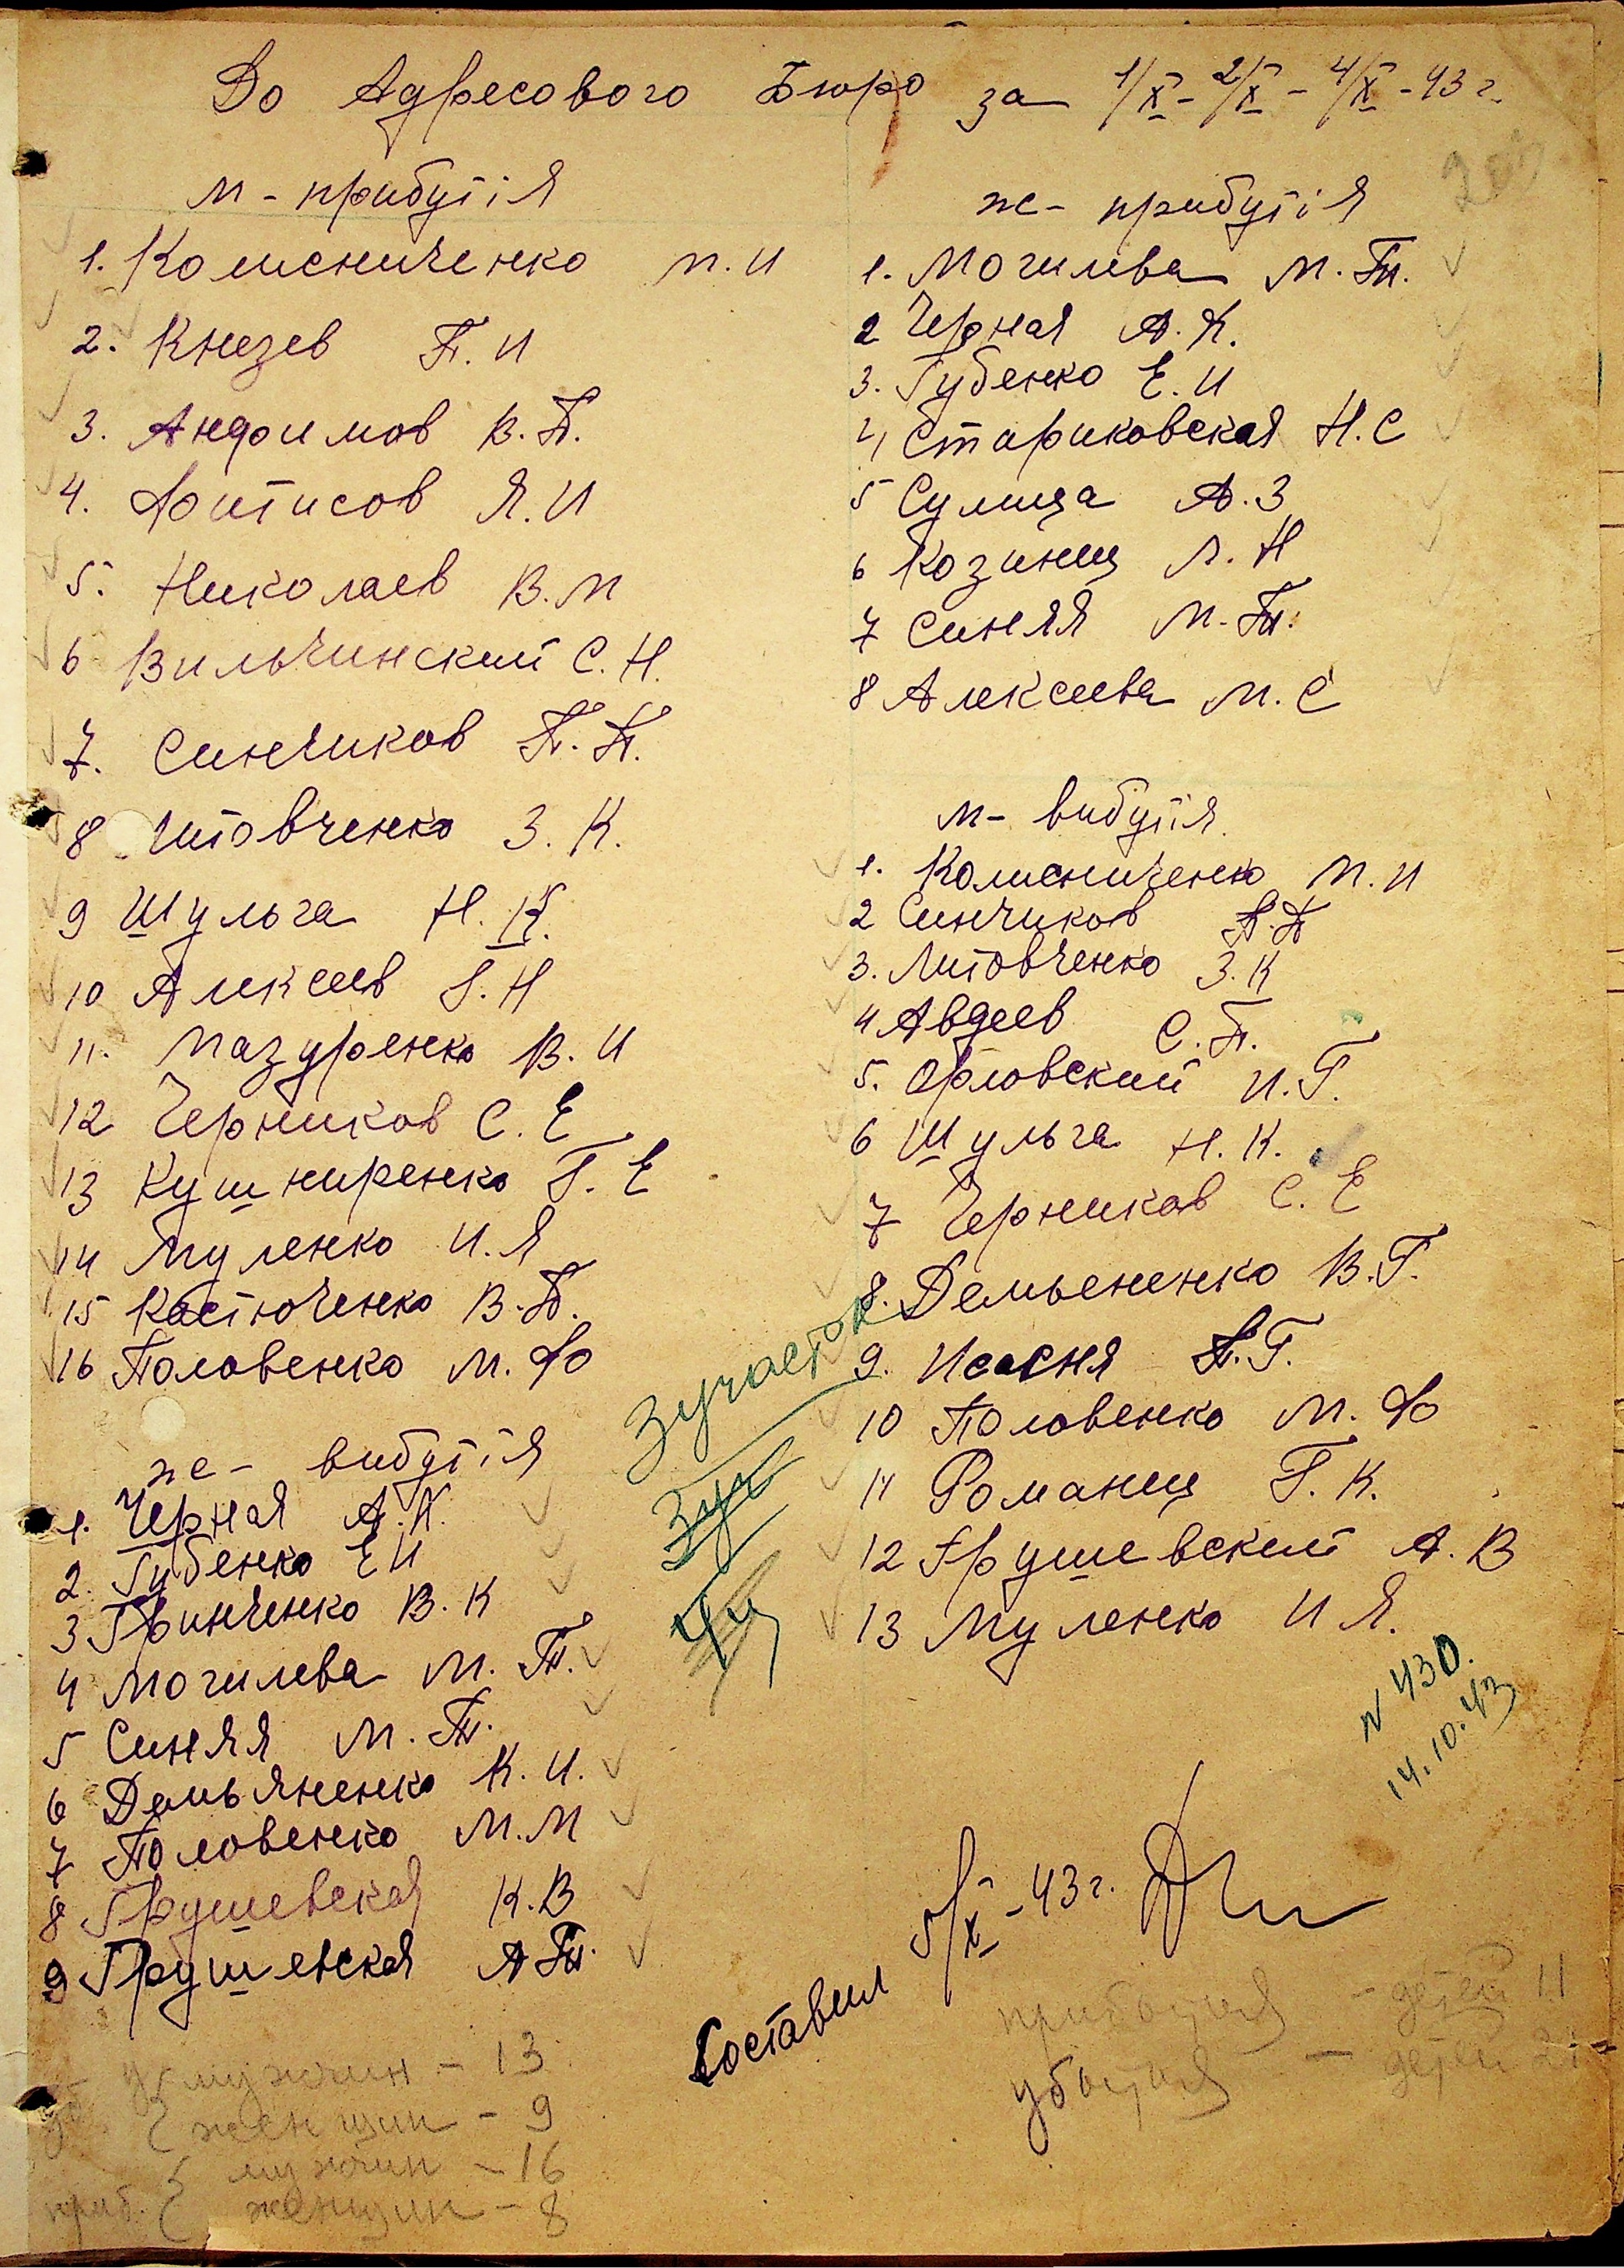 До Адресового Бюро за 1/X - 2/X - 4/X - 43 г.
м - прибутія
1. Колисниченко М. И
2. Князев П. И
3. Анфимов В. П.
4. Фитисов Я. И
5. Николаев В. М
6 Вильчинский С. Н.
7. Синчиков П. П.
8 Литовченко З. К.
9 Шульга Н. К.
10 Алексеев Г. Н
11. Мазуренко В. И
12 Черников С. Е
13 Кушниренко Г. Е
14 Муленко И. Я
15 Костюченко В. П.
16 Половенко М. Ф
же - вибутія
1. Черная А. К.
2. Губенко Е И
3 Гринченко В. К
4 Могилева М. Т.
5 Синяя М. Т.
6 Демьяненко К. И.
7 Половенко М. М
8 Грушевская К. В
9 Грушевская А Т.
мужчин - 13
женщин - 9
мужчин - 16
приб. женщин - 8
же - прибутія
1. Могилева М. Т.
2 Черная А. К.
3. Губенко Е. И
4 Стариковская Н. С
5 Сулица А. З
6 Козинец Л. Н
7 Синяя М. Т.
8 Алексеева М. С
м - вибутія
1. Колисниченко М. И
2 Синчиков П. П
3. Литовченко З. К
4 Авдеев С. П.
5. Орловский И. Г.
6 Шульга Н. К.
7 Черников С. Е
8. Демьененко В. Г.
9. Исасня Г.
10 Половенко М. Ф
11 Романец Г. К.
12 Грушевский А. В
13 Муленко И Я.
3 участок
3 уч
4 уч
N 430.
14.10.43
Составил 5/X - 43 г.
прибытия - детей 11
убытия - детей